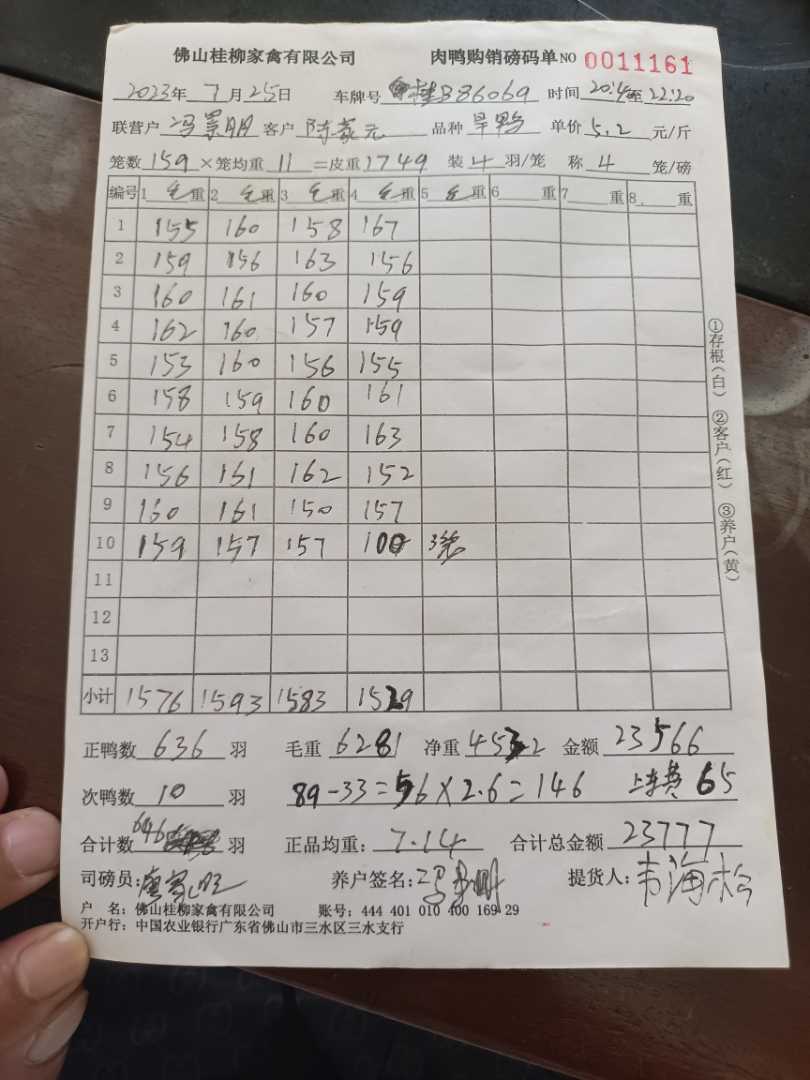 佛山桂柳家禽有限公司 肉鸭购销磅码单NO 0011161
2023年 7月25日 车牌号 桂B86069 时间 20:4至22:20
联营户 冯景明 客户 陈蒙元 品种 旱鸭 单价 5.2 元/斤
笼数 159 ×笼均重 11 =皮重 1749 装 4 羽/笼 称 4 笼/磅
编号 1 毛重 2 毛重 3 毛重 4 毛重 5 毛重 6 重 7 重 8 重
1 155 160 158 167
2 159 156 163 156
3 160 161 160 159
4 162 160 157 159
5 153 160 156 155
6 158 159 160 161
7 154 158 160 163
8 156 161 162 152
9 160 161 150 157
10 159 157 157 100 3笼
11
12
13
小计 1576 1593 1583 1529
正鸭数 636 羽 毛重 6281 净重 4532 金额 23566
次鸭数 10 羽 89-33=56×2.6=146 上车费 65
合计数 646 羽 正品均重: 7.14 合计总金额 23777
司磅员: 养户签名: 冯景明 提货人: 韦海松
户 名: 佛山桂柳家禽有限公司 账号: 444 401 010 400 169 29
开户行: 中国农业银行广东省佛山市三水区三水支行
①存根(白) ②客户(红) ③养户(黄)